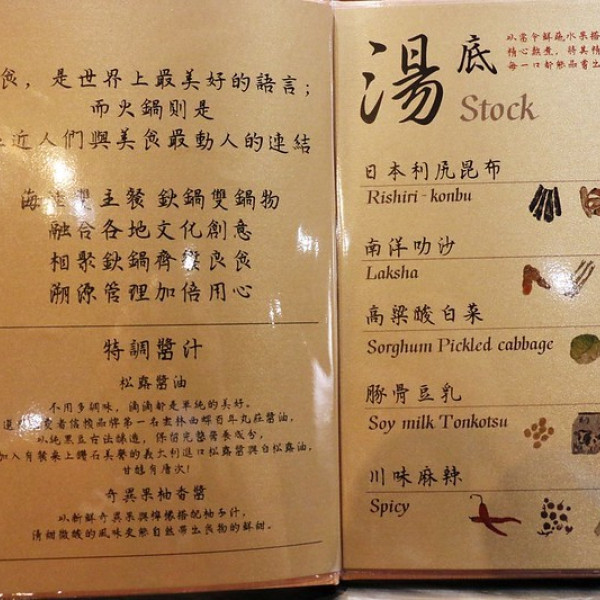 食，是世界上最美好的語言；
而火鍋則是
近人們與美食最動人的連結
海陸雙主餐 鈥鍋雙鍋物
融合各地文化創意
相聚鈥鍋齊饗良食
溯源管理加倍用心
特調醬汁
松露醬油
不用多調味，滴滴都是單純的美好。
以純黑豆古法釀造，保留完整營養成份，
加入有餐桌上鑽石美譽的義大利進口松露醬與白松露油，
甘醇有層次！
奇異果柚香醬
以新鮮奇異果與檸檬搭配柚子汁，
清甜微酸的風味更能自然帶出食物的鮮甜。
湯底
Stock
以當令鮮蔬水果搭
精心熬煮，將其精
每一口都能品嘗出
日本利尻昆布
Rishiri-konbu
南洋叻沙
Laksha
高粱酸白菜
Sorghum Pickled cabbage
豚骨豆乳
Soy milk Tonkotsu
川味麻辣
Spicy